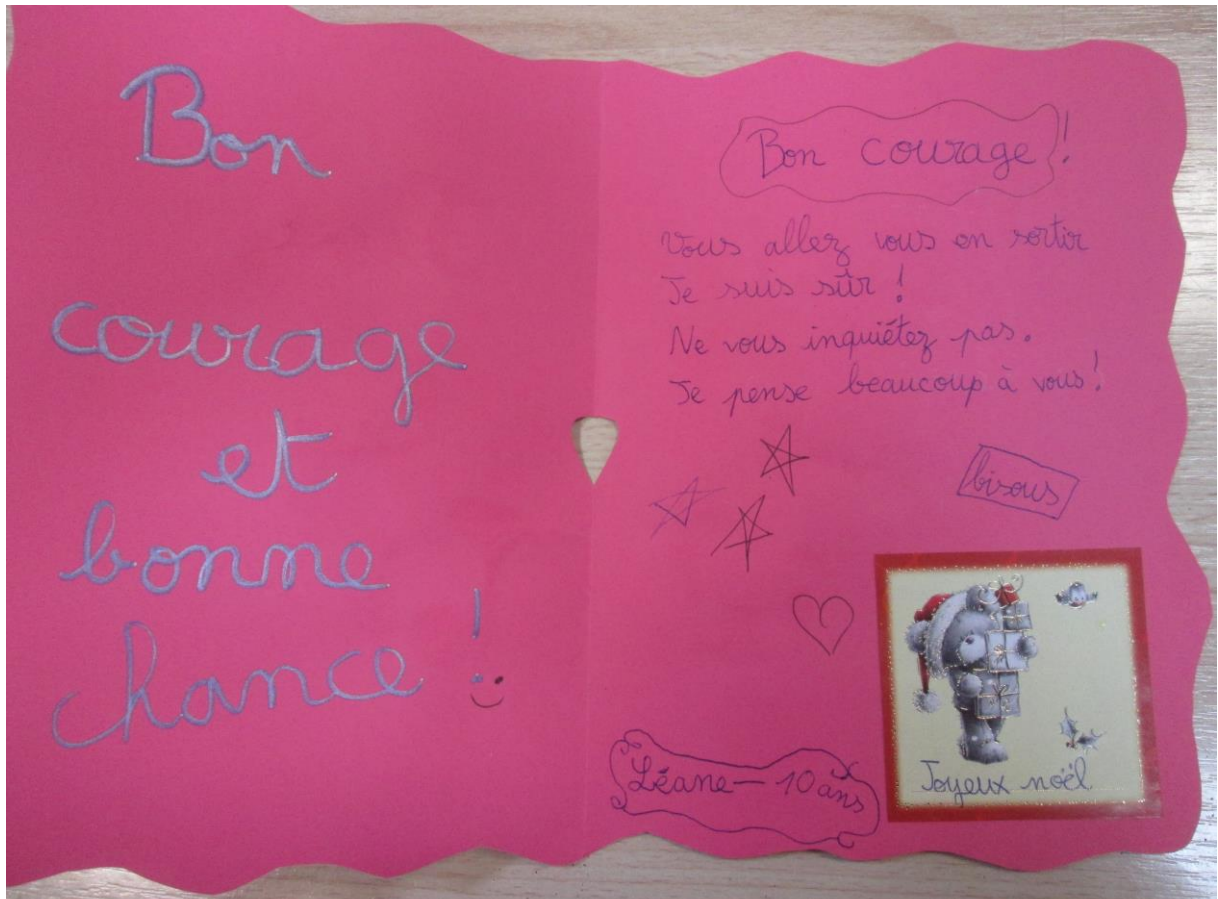 Bon
courage
et
bonne
chance !
Bon courage !
Vous allez vous en sortir
Je suis sûr !
Ne vous inquiétez pas.
Je pense beaucoup à vous !
bisous
Joyeux noël
Léane - 10 ans